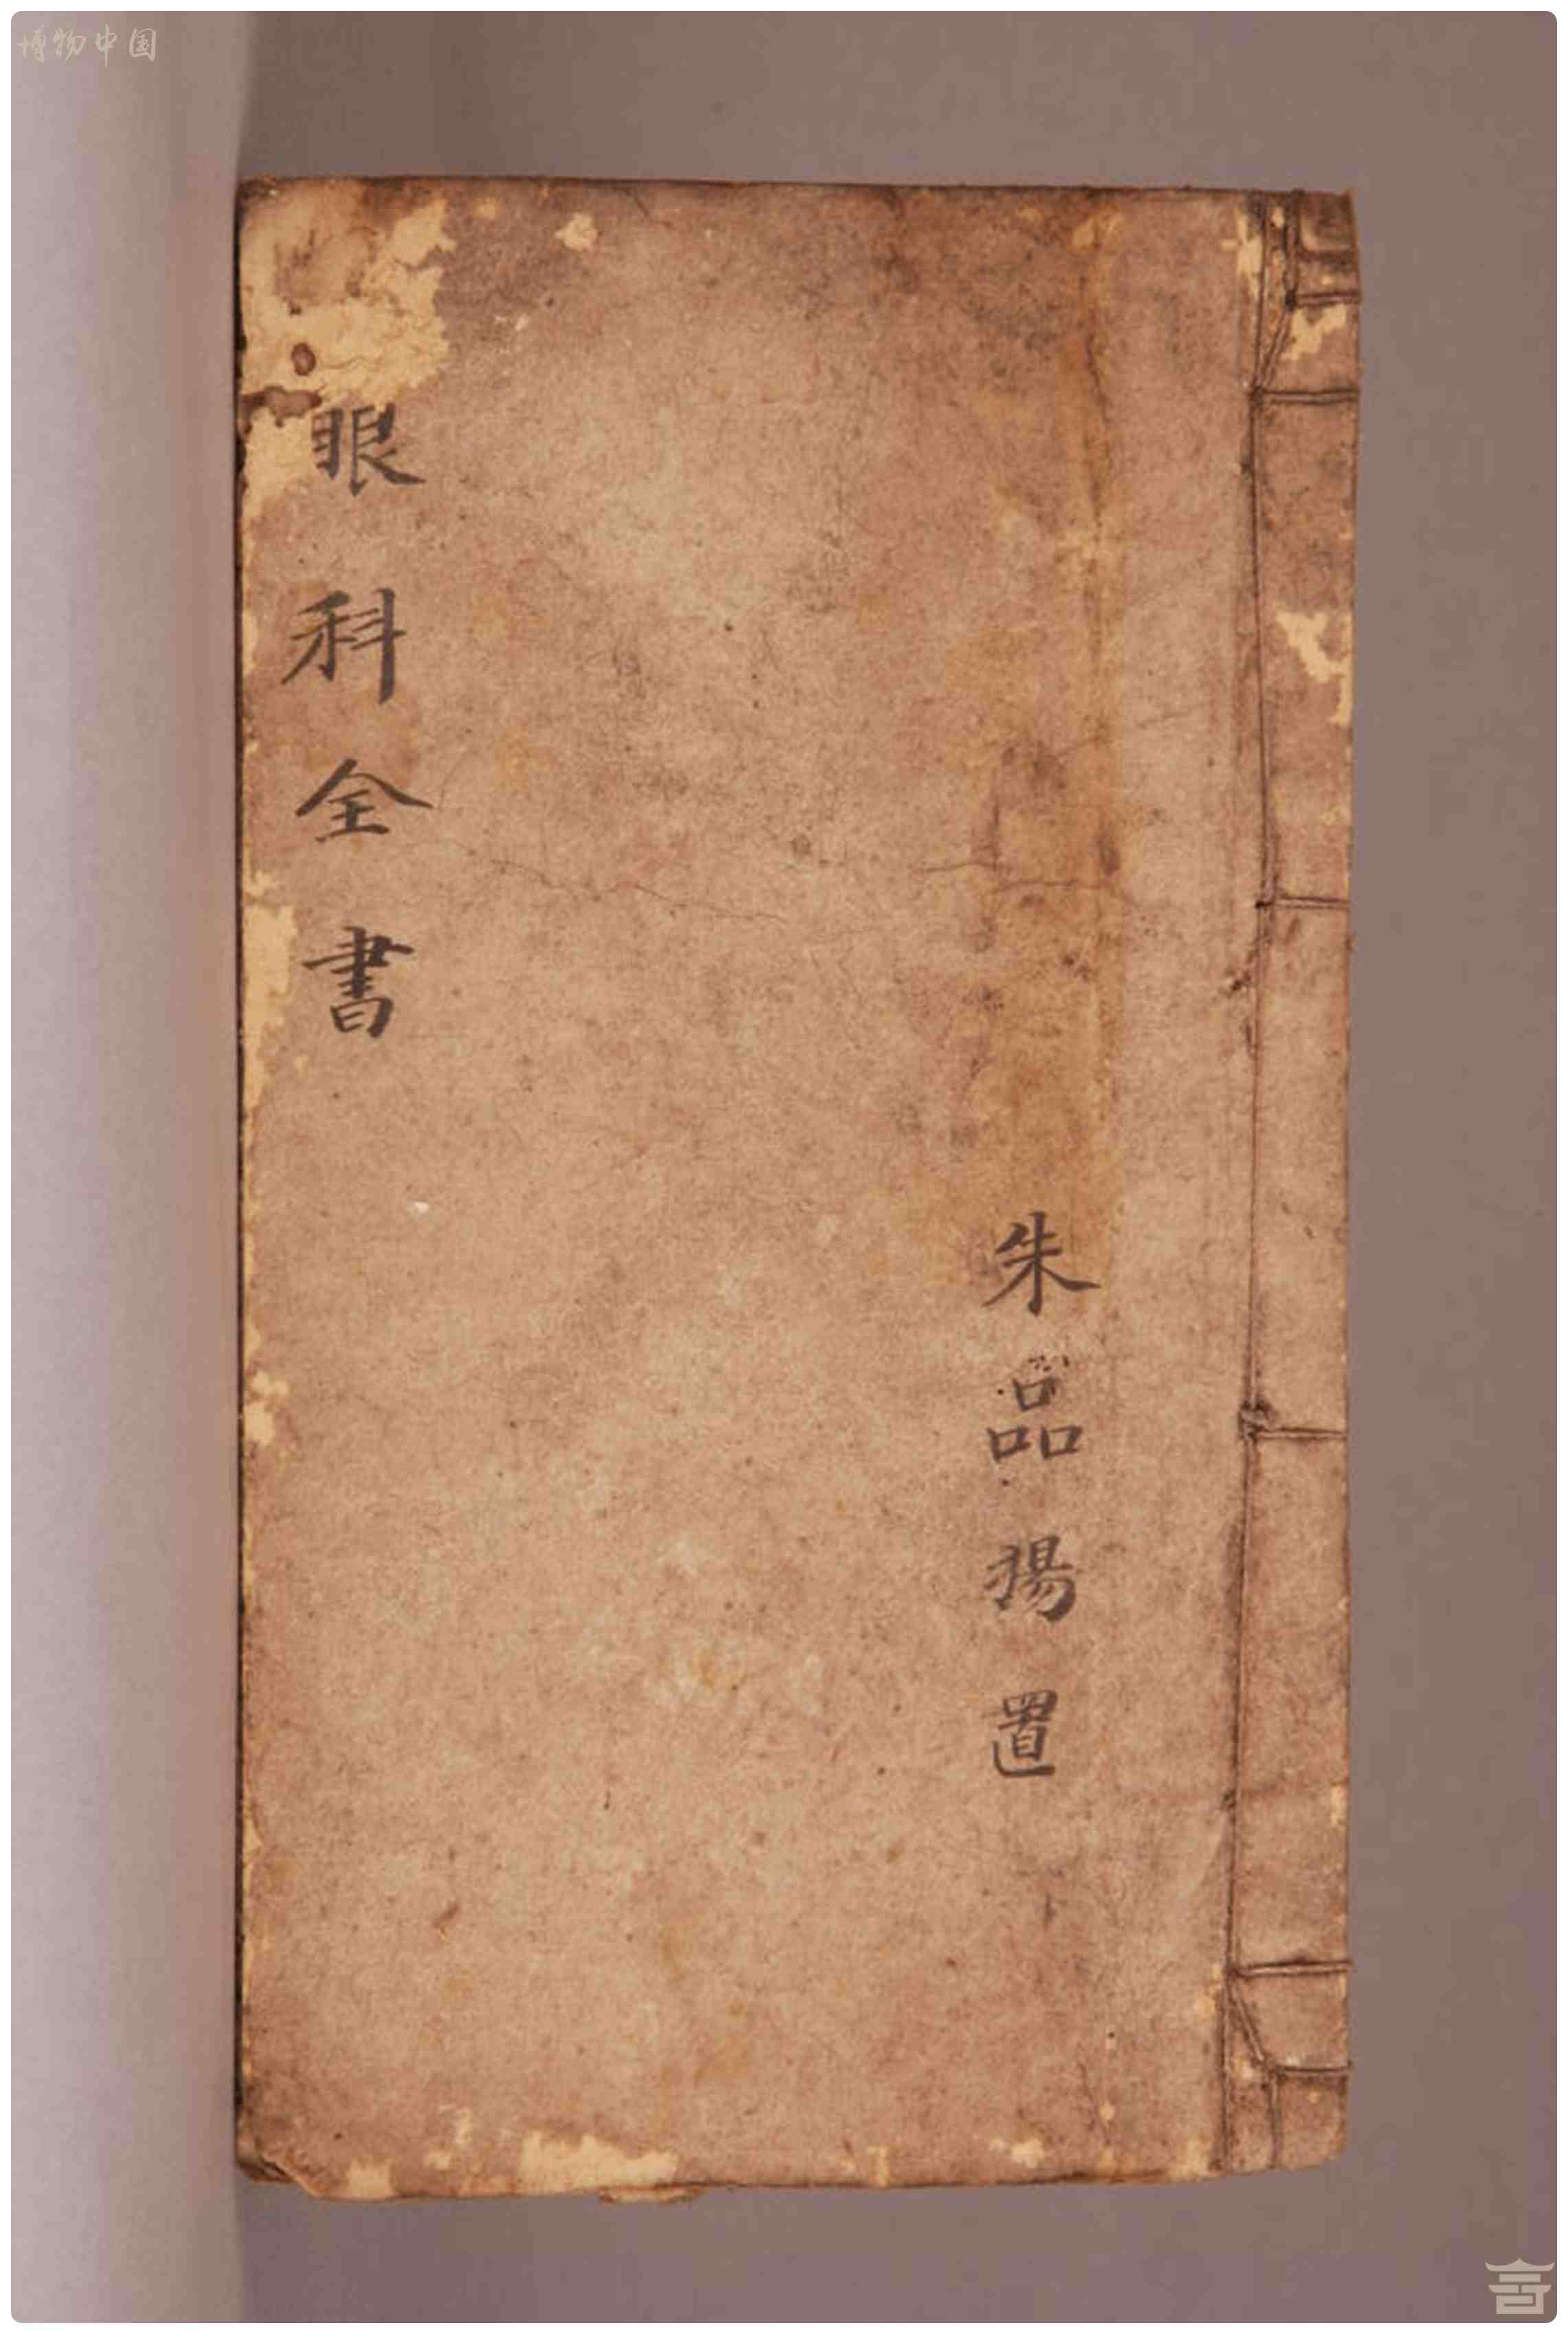 博物中国
眼科全書
朱品楊置